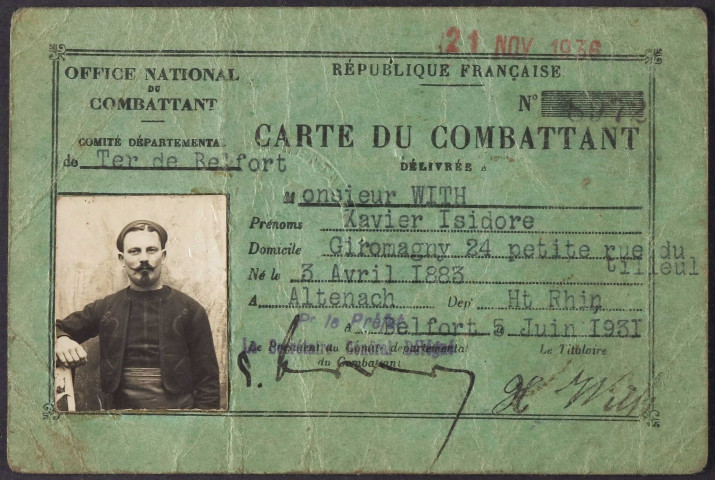 21 NOV 1936
OFFICE NATIONAL
DU
COMBATTANT
COMITÉ DÉPARTEMENTAL
de Ter de Belfort
RÉPUBLIQUE FRANÇAISE
N° 8972
CARTE DU COMBATTANT
DÉLIVRÉE A
Monsieur WITH
Prénoms Xavier Isidore
Domicile Giromagny 24 petite rue du
tilleul
Né le 3 Avril 1883
A Altenach Dep' Ht Rhin
Pr le Préfet
A Belfort 5 Juin 1931
Le Président du Comité départemental
du Combattant
Le Titulaire
X With